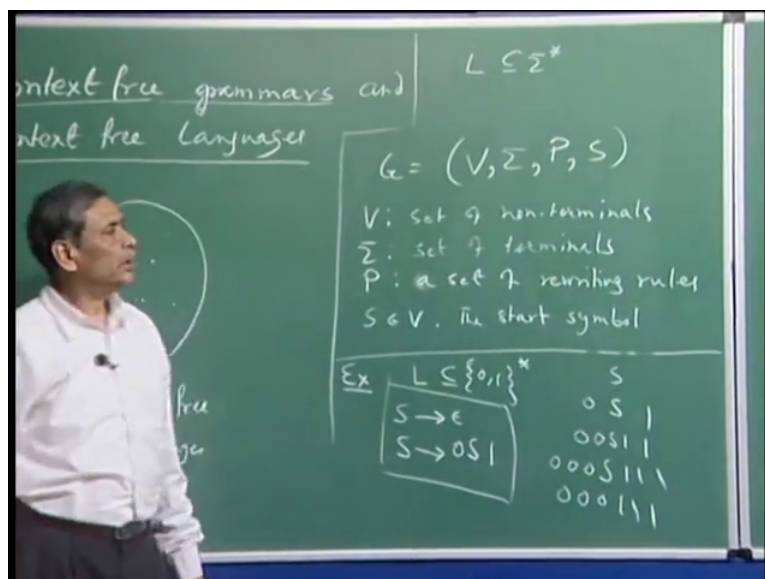 ontext free grammars and
ntext free Languages
free
ges
L ⊆ Σ*
G = (V, Σ, P, S)
V : set of non-terminals
Σ : set of terminals
P : a set of rewriting rules
S ∈ V. The start symbol
Ex L ⊆ {0,1}*
S → ϵ
S → 0S1
S
0 S 1
00S11
000S111
000111